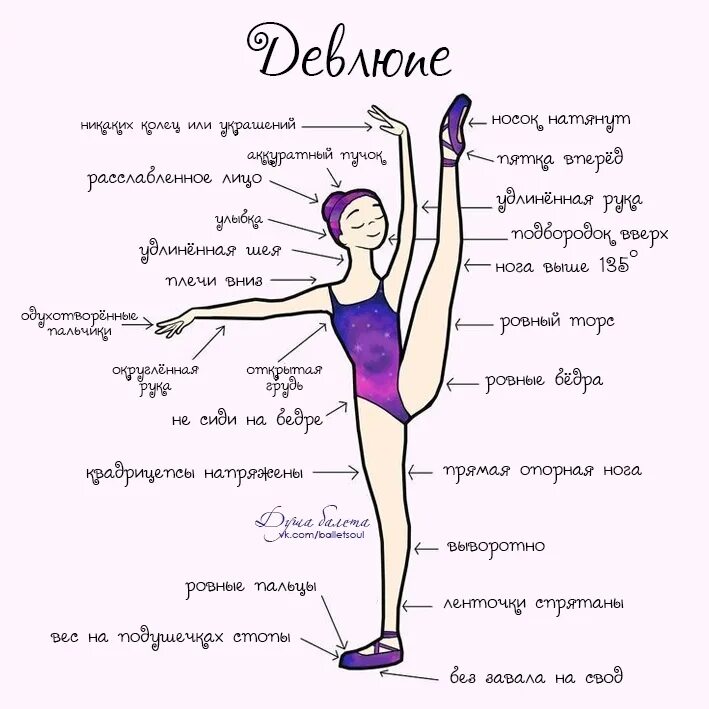 Девлюпе
никаких колец или украшений
носок натянут
аккуратный пучок
пятка вперёд
расслабленное лицо
удлинённая рука
улыбка
подбородок вверх
удлинённая шея
нога выше 135°
плечи вниз
одухотворённые
пальчики
ровный торс
округлённая
рука
открытая
грудь
ровные бёдра
не сиди на бедре
квадрицепсы напряжены
прямая опорная нога
Душа балета
vk.com/balletsoul
выворотно
ровные пальцы
ленточки спрятаны
вес на подушечках стопы
без завала на свод